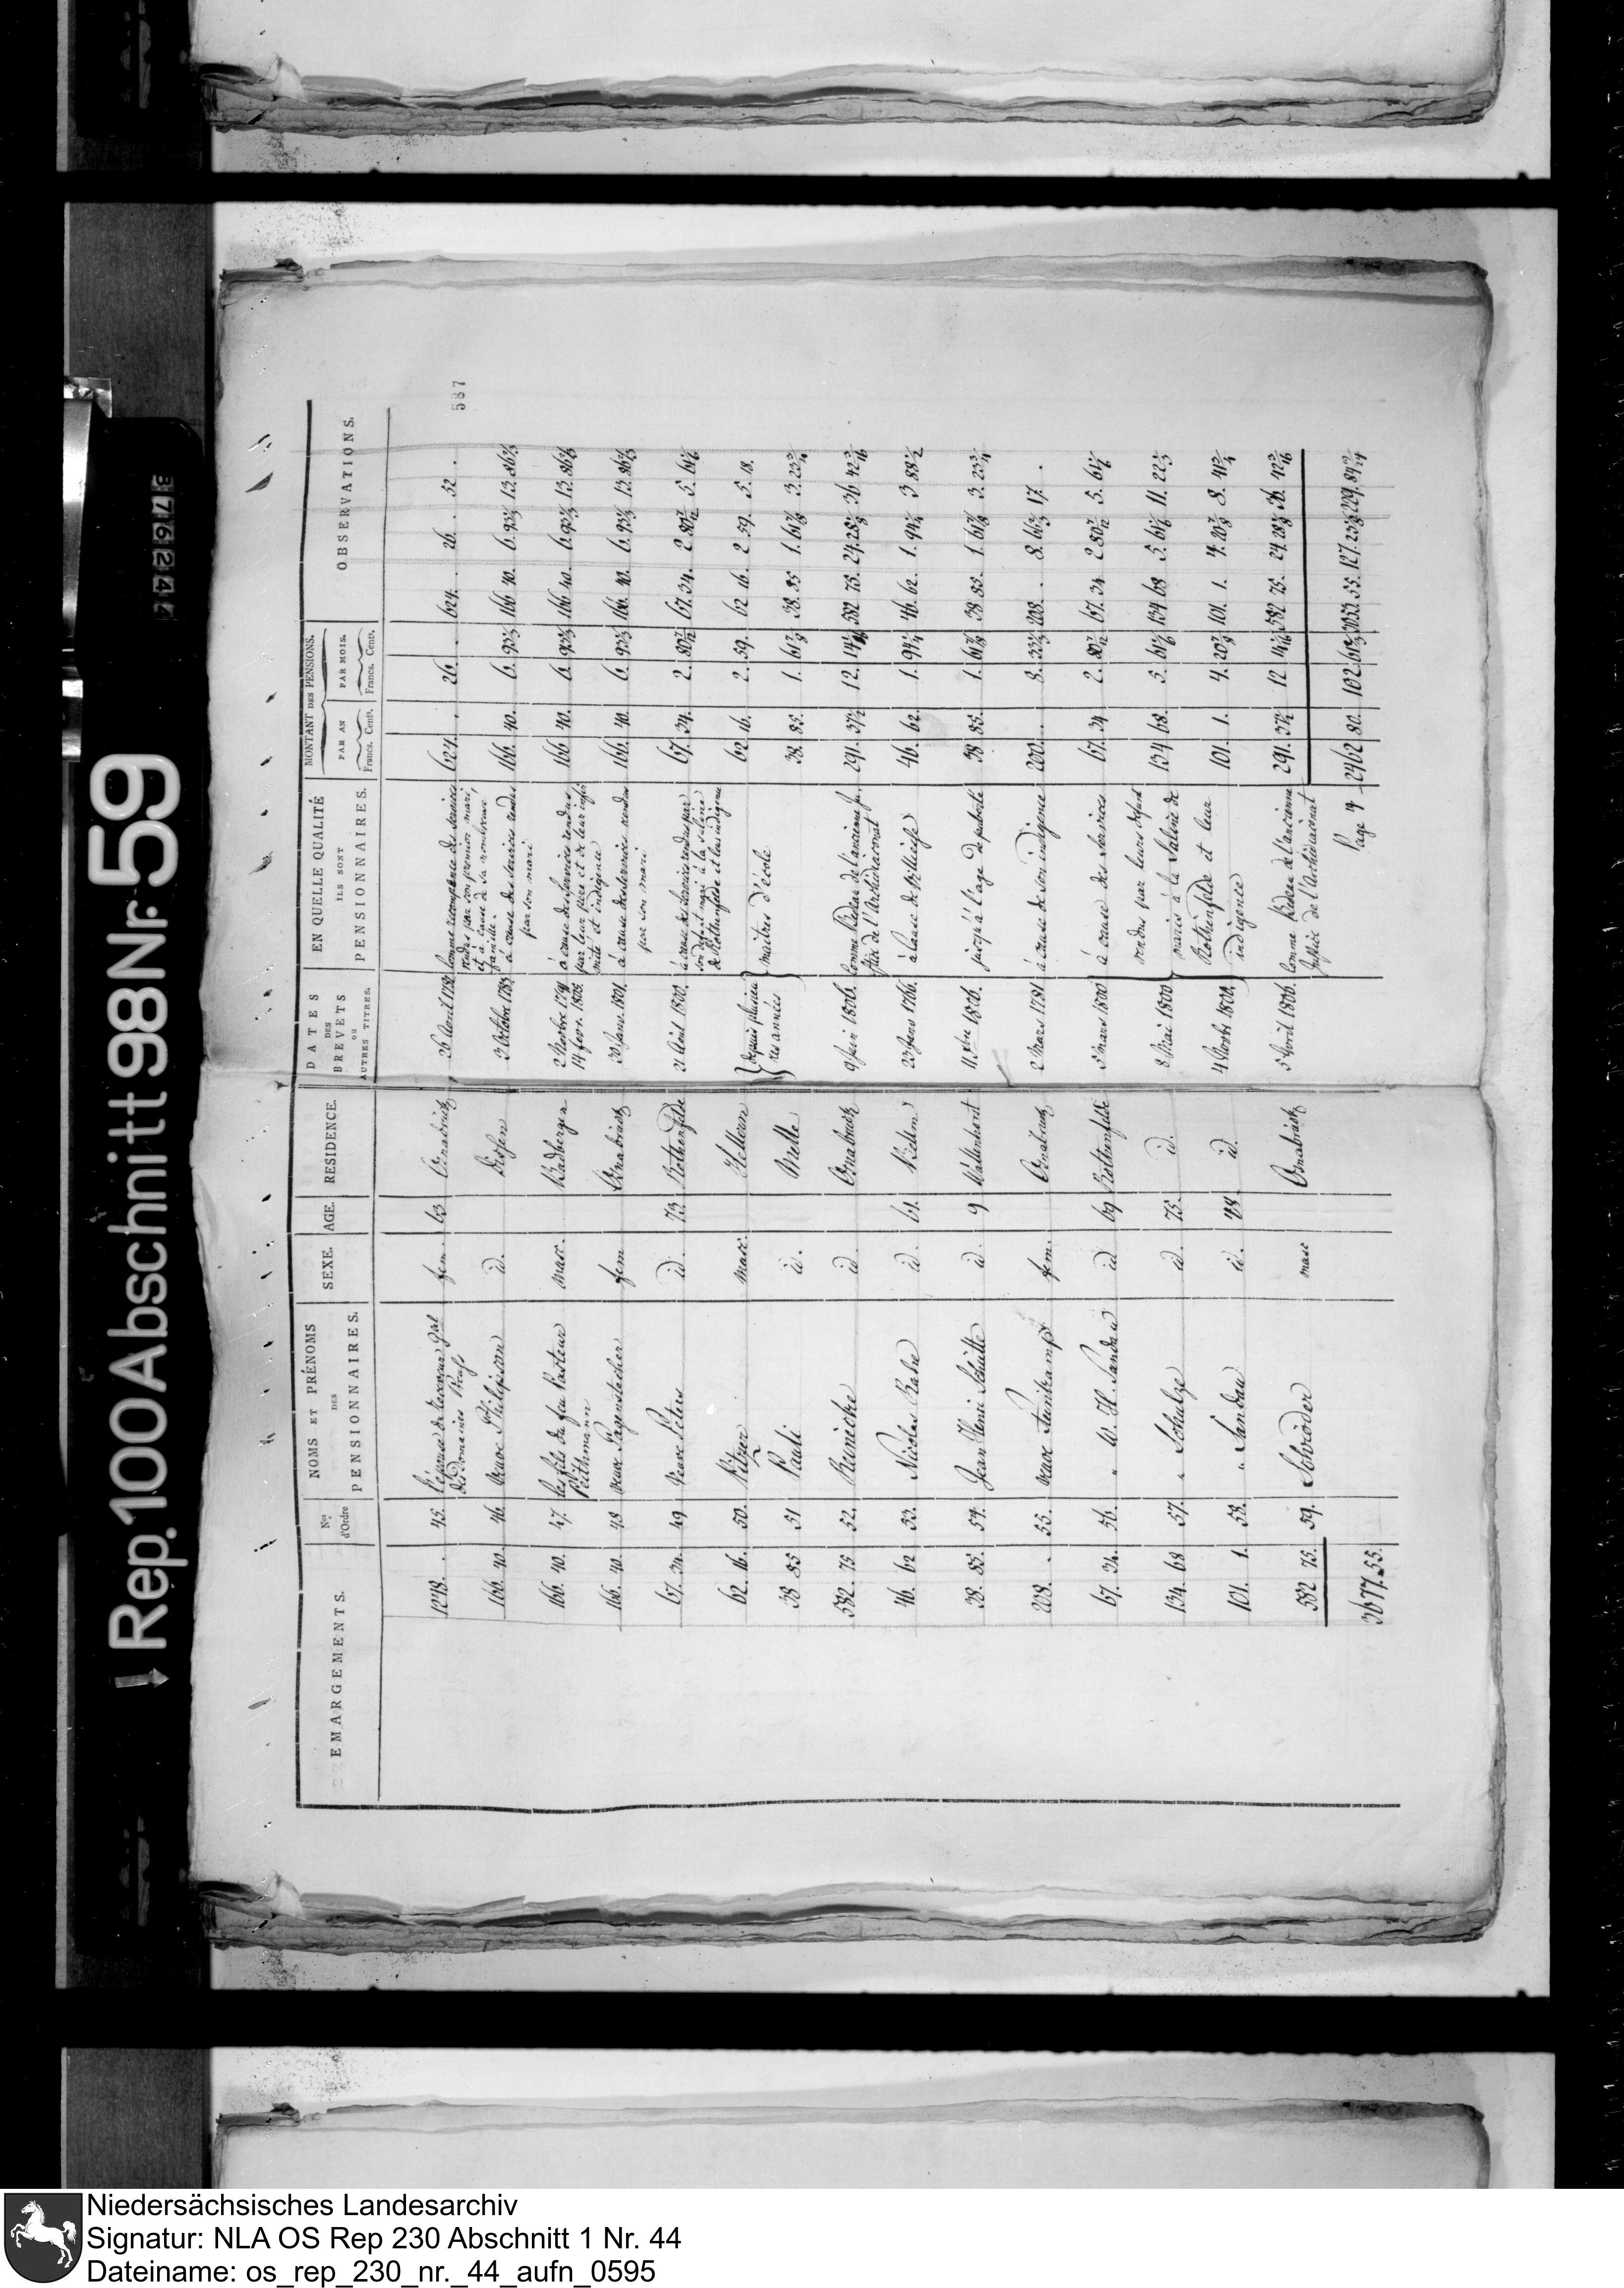 Rep. 100 Abschnitt 98 Nr. 59
376244
537
EMARGEMENTS. | Nos d'Ordre | NOMS ET PRÉNOMS DES PENSIONNAIRES. | SEXE. | AGE. | RESIDENCE. | DATES DES BREVETS OU AUTRES TITRES. | EN QUELLE QUALITÉ ILS SONT PENSIONNAIRES. | MONTANT DES PENSIONS. PAR AN Francs. Cents. | PAR MOIS. Francs. Cents. | OBSERVATIONS.
1248. . | 45. | L'épouse du Receveur Gal des Domaines | fem. | 63 | Osnabrück | 26 Avril 1782 | comme récompense des services rendus par son premier mari, et à cause de sa nombreuse famille. | 624. . | 26 . | 624. . 26 . 52 .
166. 40. | 46. | Veuve Philipson | id. | | | 3 Octobre 1783 | à cause des services rendus par son mari | 166. 40. | 6. 93⅓ | 166 40. 6. 93⅓ 13. 86⅔
166. 40. | 47. | les fils du feu Pasteur | masc. | | Badbergen | 2 Novbre 1791 14 fevr. 1805. | à cause des services rendus par leur père et de leur infirmité et indigence | 166 40. | 6 93⅓ | 166 40. 6. 93⅓ 13. 86⅔
166. 40. | 48 | Veuve Pagenstecher | fem | | Osnabrück | 30 Janv. 1801. | à cause des services rendus par son mari | 166. 40. | 6. 93⅓ | 166. 40. 6. 93⅓ 13. 86⅔
67. 34. | 49 | Veuve Peters | id. | 73. | Rothenfelde | 21 Août 1800. | à cause de services rendus par son défunt mari à la saline de Rothenfelde et leur indigence | 67. 34. | 2. 80 7/12 | 67. 34. 2 80 7/12 5. 61⅙
62. 16. | 50. | | masc. | | Hellern | depuis plusieurs années | maitres d'école | 62 16. | 2. 59. | 62 16. 2 59. 5. 18.
38 85 | 51 | Pauli | id. | | Melle | | | 38. 85. | 1. | 38. 85 1. 3. 23¾
582. 75 | 52. | Reinicke | id | | Osnabrück | 9 Juin 1806. | comme Pedeau de l'ancienne Justice de l'Archidiaconat | 291. 37½ | 12. 14 | 582 75. 24. 28⅛ 36 42
46. 62 | 53. | Nicolas Rahe | id. | 61. | Belm | 23 Janv 1766. | à cause de vieillesse | 46. 62. | 1. 94¼ | 46. 62. 1. 94¼ 3 88½
38. 85. | 54. | Jean Henri Schütte | id. | 9 | Wallenhorst | 11. Xbre 1806. | jusqu'à l'age de puberté | 38 85. | 1. 61⅞ | 38 85. 1. 61⅞ 3. 23¾
208. . | 55. | veuve | fem. | | Osnabruck | 2 Mars 1791 | à cause de son indigence | 200. . | 8. 33⅓ | 208. . 8. 66⅔ 17. .
67. 34. | 56. | " W. H. Sandau | id | 69 | Rothenfelde | 5 mars 1800 | à cause des services rendus par leurs défunt maris à la Saline de Rothenfelde et leur indigence | 67. 34 | 2. 80 7/12 | 67. 34 2 80 7/12 5. 61⅙
134. 68 | 57. | " Schulze | id. | 75. | id. | 8 Mai 1800 | | 134 68. | 5. 61⅙ | 134 68 5. 61⅙ 11. 22⅓
101. 1. | 58. | " Sandau | id. | | id. | 4 Novbr 1800. | | 101. 1. | 4. | 101. 1. 4. 8.
582 75. | 59. | Schröder | masc | | Osnabrück | 5 Avril 1806. | comme Pedeau de l'ancienne Justice de l'Archidiaconat | 291. 37½ | 12 | 582 75. 24 28⅛ 36. 42
3677. 55. | Page 4 | 2462 80. | 102 | 127.
Niedersächsisches Landesarchiv
Signatur: NLA OS Rep 230 Abschnitt 1 Nr. 44
Dateiname: os_rep_230_nr._44_aufn_0595